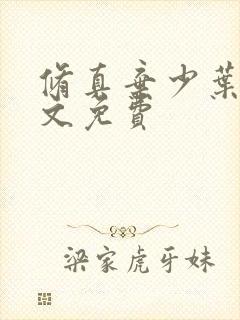 脩真弃少葉
文免費
梁家虎牙妹